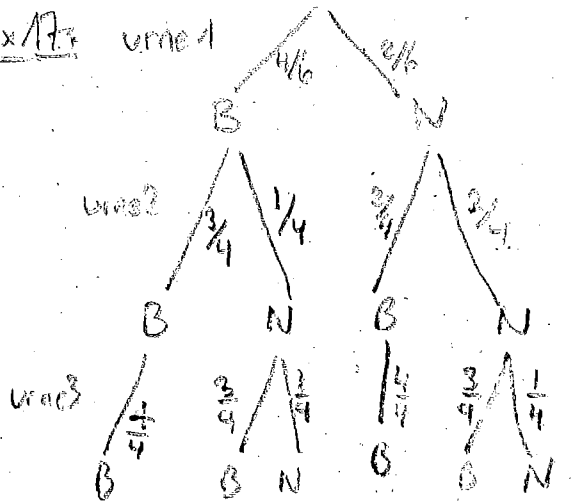 x 17. urne 1
4/6 2/6
B N
urne 2 3/4 1/4 2/4 2/4
B N B N
urne 3 3/4 1/4 4/4 3/4 1/4
B B N B B N